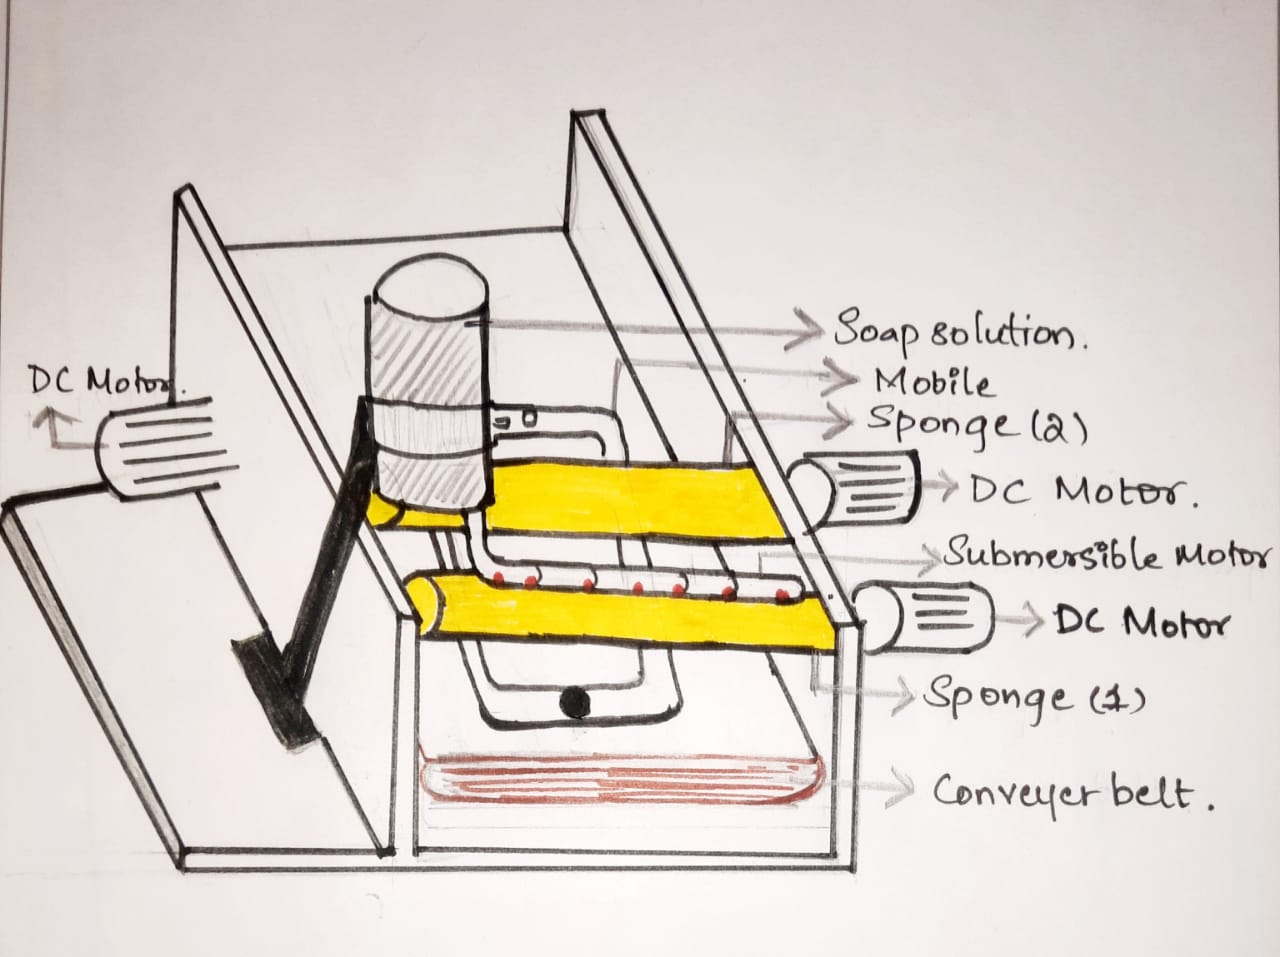 Soap solution.
DC Motor.
Mobile
Sponge (2)
DC Motor.
Submersible Motor
DC Motor
Sponge (1)
Conveyer belt.